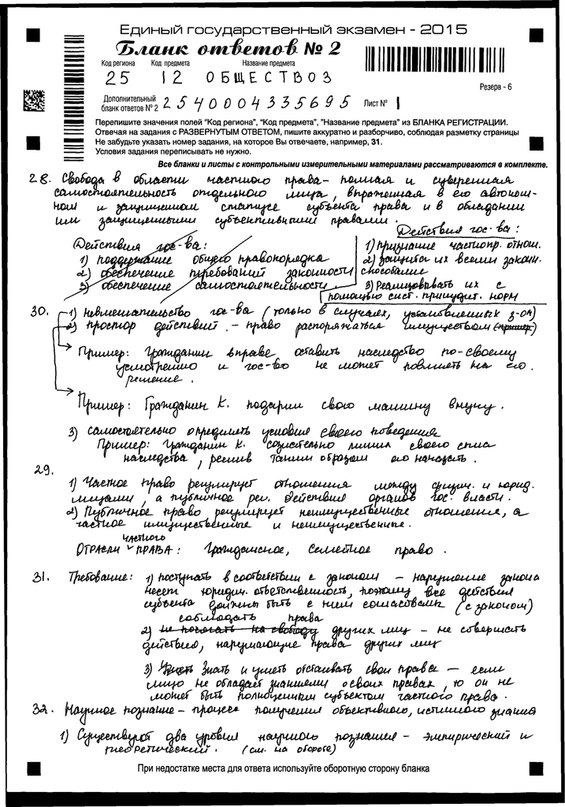 Единый государственный экзамен - 2015
Бланк ответов № 2
Код региона Код предмета Название предмета
25 12 ОБЩЕСТВОЗ
Резерв - 6
Дополнительный бланк ответов № 2 2540004335695 Лист № 1
Перепишите значения полей "Код региона", "Код предмета", "Название предмета" из БЛАНКА РЕГИСТРАЦИИ.
Отвечая на задания с РАЗВЕРНУТЫМ ОТВЕТОМ, пишите аккуратно и разборчиво, соблюдая разметку страницы
Не забудьте указать номер задания, на которое Вы отвечаете, например, 31.
Условия задания переписывать не нужно.
Все бланки и листы с контрольными измерительными материалами рассматриваются в комплекте.
28. Свобода в области частного права - полная и суверенная
самостоятельность отдельного лица, выраженная в его автоном-
ном и защищенном статусе субъекта права и в обладании
им защищенными субъективными правами.
Действия гос-ва:
1) поддержание общего правопорядка
2) обеспечение требований законности
3) обеспечение самостоятельности
Действия гос-ва:
1) признание частнопр. отнош.
2) защита их всеми закон.
способами
3) Реализовывать их с
помощью сист. принудит. норм
30. 1) невмешательство гос-ва (только в случаях, установленных з-ом)
2) простор действий - право распоряжаться имуществом
Пример: Гражданин вправе оставить наследство по-своему
усмотрению и гос-во не может повлиять на его
решение.
Пример: Гражданин К. подарил свою машину внуку.
3) самостоятельно определить условия своего поведения
Пример: Гражданин К. лишил своего сына
наследства, решив таким образом его наказать.
29.
1) Частное право регулирует отношения между физич. и юрид.
лицами, а публичное рег. действия органов гос. власти.
2) Публичное право регулирует неимущественные отношения, а
частное имущественные и неимущественные.
ОТРАСЛИ ЧАСТНОГО ПРАВА: Гражданское, Семейное право.
31. Требование: 1) поступать в соответствии с законом - нарушение закона
несет юридич. ответственность, поэтому все действия
субъекта должны быть с ним согласованы (с законом)
соблюдать права
2) не посягать на свободу других лиц - не совершать
действия, нарушающие права других лиц
3) Знать и уметь отстаивать свои права - если
лицо не обладает знаниями о своих правах, то он не
может быть полноценным субъектом частного права.
32. Научное познание - процесс получения объективного, истинного знания
1) Существуют два уровня научного познания - эмпирический и
теоретический. (см. на обороте)
При недостатке места для ответа используйте оборотную сторону бланка